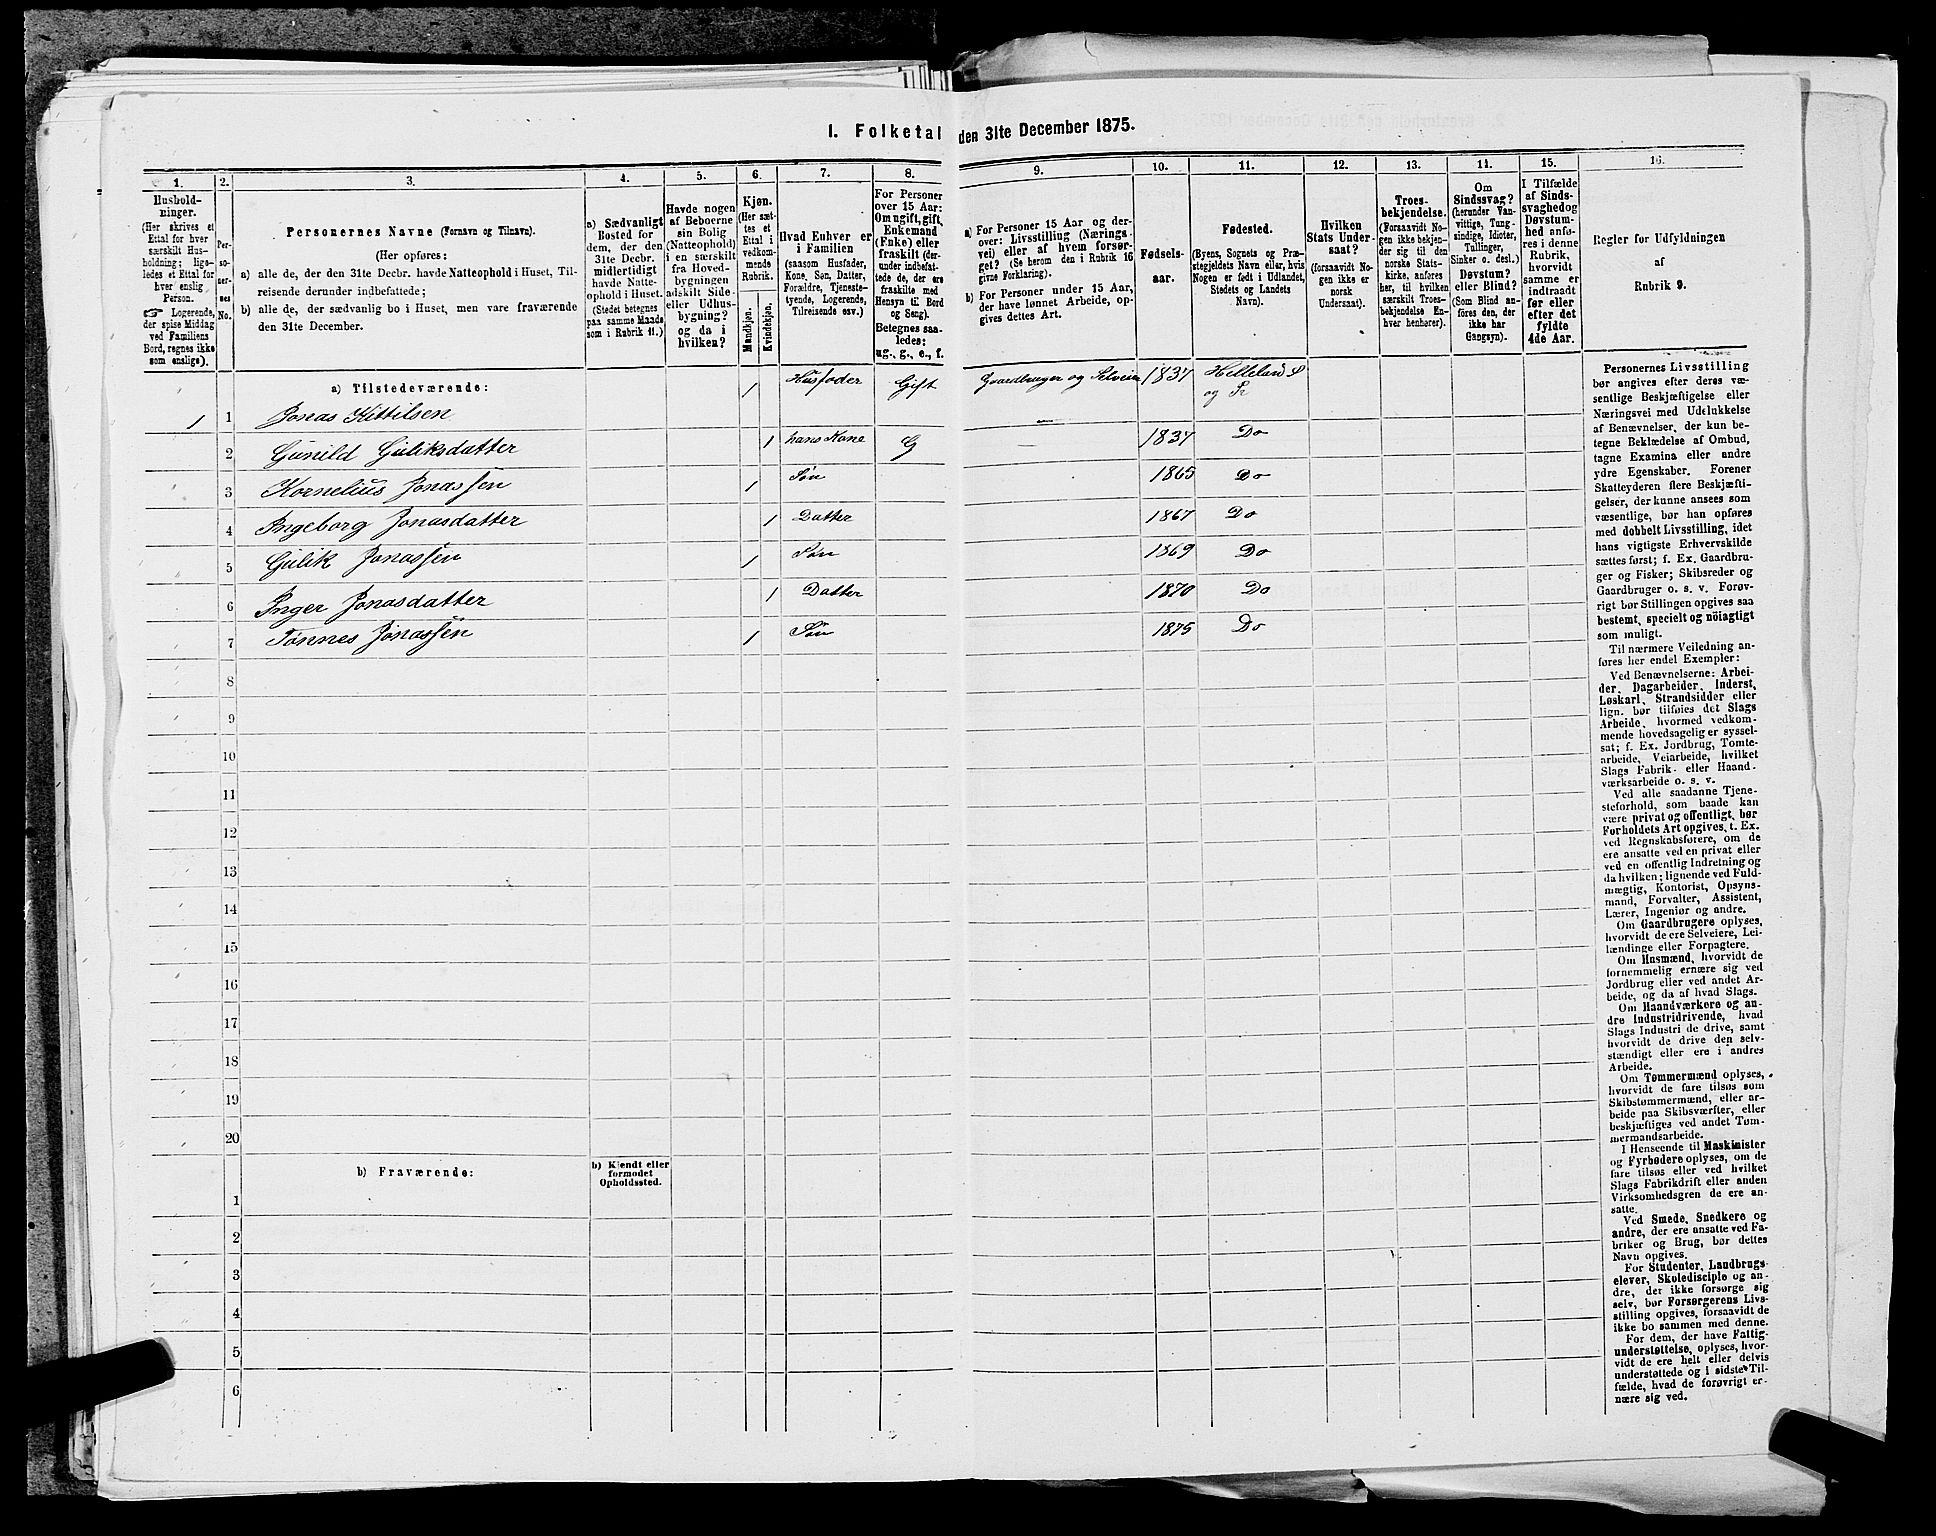 I. Folketal den 31te December 1875.
1.
Hushold-
ninger.
(Her skrives et
Ettal for hver
særskilt Hus-
holdning; lige-
ledes et Ettal for
hver enslig
Person.
☞ Logerende,
der spise Middag
ved Familiens
Bord, regnes ikke
som enslige).
2.
Per-
so-
ner-
nes
No.
3.
Personernes Navne (Fornavn og Tilnavn).
(Her opføres:
a) alle de, der den 31te Decbr. havde Natteophold i Huset, Til-
reisende derunder indbefattede;
b) alle de, der sædvanlig bo i Huset, men vare fraværende
den 31te December.
4.
a) Sædvanligt
Bosted for
dem, der den
31te Decbr.
midlertidigt
havde Natte-
ophold i Huset.
(Stedet betegnes
paa samme Maade
som i Rubrik 11.)
5.
Havde nogen
af Beboerne
sin Bolig
(Natteophold)
i en særskilt
fra Hoved-
bygningen
adskilt Side-
eller Udhus-
bygning?
og da i
hvilken?
6.
Kjøn.
(Her sæt-
tes et
Ettal i
vedkom-
mende
Rubrik.
Mandkjøn.
Kvindekjøn.
7.
Hvad Enhver er
i Familien
(saasom Husfader,
Kone, Søn, Datter,
Forældre, Tjeneste-
tyende, Logerende,
Tilreisende osv.)
8.
For Personer
over 15 Aar:
Om ugift, gift,
Enkemand
(Enke) eller
fraskilt (der-
under indbefat-
tede de, der ere
fraskilte med
Hensyn til Bord
og Seng).
Betegnes saa-
ledes:
ug., g., e., f.
9.
a) For Personer 15 Aar og der-
over: Livsstilling (Nærings-
vei) eller af hvem forsør-
get? (Se herom den i Rubrik 16
givne Forklaring).
b) For Personer under 15 Aar,
der have lønnet Arbeide, op-
gives dettes Art.
10.
Fødsels-
aar.
11.
Fødested.
(Byens, Sognets og Præ-
stegjeldets Navn eller, hvis
Nogen er født i Udlandet,
Stedets og Landets
Navn).
12.
Hvilken
Stats Under-
saat?
(forsaavidt No-
gen ikke er
norsk
Undersaat).
13.
Troes-
bekjendelse.
(Forsaavidt No-
gen ikke bekjen-
der sig til den
norske Stats-
kirke, anføres
her, til hvilken
særskilt Troes-
bekjendelse En-
hver henhører).
14.
Om
Sindssvag?
(herunder Van-
vittige, Tung-
sindige, Idioter,
Tullinger,
Sinker o. desl.)
Døvstum?
eller Blind?
(Som Blind an-
føres den, der
ikke har
Gangsyn).
15.
I Tilfælde
af Sinds-
svaghed og
Døvstum-
hed anfø-
res i denne
Rubrik,
hvorvidt
samme er
indtraadt
før eller
efter det
fyldte
4de Aar.
16.
Regler for Udfyldningen
af
Rubrik 9.
a) Tilstedeværende:
1 1 Jonas Kittilsen 1 Husfader Gift Gaardbruger og Selveier 1837 Helleland S
og Pr
2 Gunild Guliksdatter 1 hans Kone G 1837 Do
3 Kornelius Jonassen 1 Søn 1865 Do
4 Ingeborg Jonasdatter 1 Datter 1867 Do
5 Gulik Jonassen 1 Søn 1869 Do
6 Inger Jonasdatter 1 Datter 1870 Do
7 Tønnes Jonassen 1 Søn 1875 Do
8
9
10
11
12
13
14
15
16
17
18
19
20
b) Fraværende:
b) Kjendt eller
formodet
Opholdssted.
1
2
3
4
5
6
Personernes Livsstilling
bør angives efter deres væ-
sentlige Beskjæftigelse eller
Næringsvei med Udelukkelse
af Benævnelser, der kun be-
tegne Beklædelse af Ombud,
tagne Examina eller andre
ydre Egenskaber. Forener
Skatteyderen flere Beskjæfti-
gelser, der kunne ansees som
væsentlige, bør han opføres
med dobbelt Livsstilling, idet
hans vigtigste Erhvervskilde
sættes først; f. Ex. Gaardbru-
ger og Fisker; Skibsreder og
Gaardbruger o. s. v. Forøv-
rigt bør Stillingen opgives saa
bestemt, specielt og nöiagtigt
som muligt.
Til nærmere Veiledning an-
føres her endel Exempler:
Ved Benævnelserne: Arbei-
der, Dagarbeider, Inderst,
Løskarl, Strandsidder eller
lign. bør tilføies det Slags
Arbeide, hvormed vedkom-
mende hovedsagelig er syssel-
sat; f. Ex. Jordbrug, Tomte-
arbeide, Veiarbeide, hvilket
Slags Fabrik- eller Haand-
værksarbeide o. s. v.
Ved alle saadanne Tjene-
steforhold, som baade kan
være privat og offentligt, bør
Forholdets Art opgives, t. Ex.
ved Regnskabsførere, om de
ere ansatte ved en privat eller
ved en offentlig Indretning og
da hvilken; lignende ved Fuld-
mægtig, Kontorist, Opsyns-
mand, Forvalter, Assistent,
Lærer, Ingeniør og andre.
Om Gaardbrugere oplyses,
hvorvidt de ere Selveiere, Lei-
lændinge eller Forpagtere.
Om Husmænd, hvorvidt de
fornemmelig ernære sig ved
Jordbrug eller ved andet Ar-
beide, og da af hvad Slags.
Om Haandværkere og an-
dre Industridrivende, hvad
Slags Industri de drive, samt
hvorvidt de drive den selv-
stændigt eller ere i andres
Arbeide.
Om Tømmermænd oplyses,
hvorvidt de fare tilsøs som
Skibstømmermænd, eller ar-
beide paa Skibsværfter, eller
beskjæftiges ved andet Tøm-
mermandsarbeide.
I Henseende til Maskinister
og Fyrbødere oplyses, om de
fare tilsøs eller ved hvilket
Slags Fabrikdrift eller anden
Virksomhedsgren de ere an-
satte.
Ved Smede, Snedkere og
andre, der ere ansatte ved Fa-
briker og Brug, bør dettes
Navn opgives.
For Studenter, Landbrugs-
elever, Skoledisciple og an-
dre, der ikke forsørge sig
selv, bør Forsørgerens Livs-
stilling opgives, forsaavidt de
ikke bo sammen med denne.
For dem, der have Fattig-
understøttelse, oplyses, hvor-
vidt de ere helt eller delvis
understøttede og i sidste Til-
fælde, hvad de forøvrigt er-
nære sig ved.